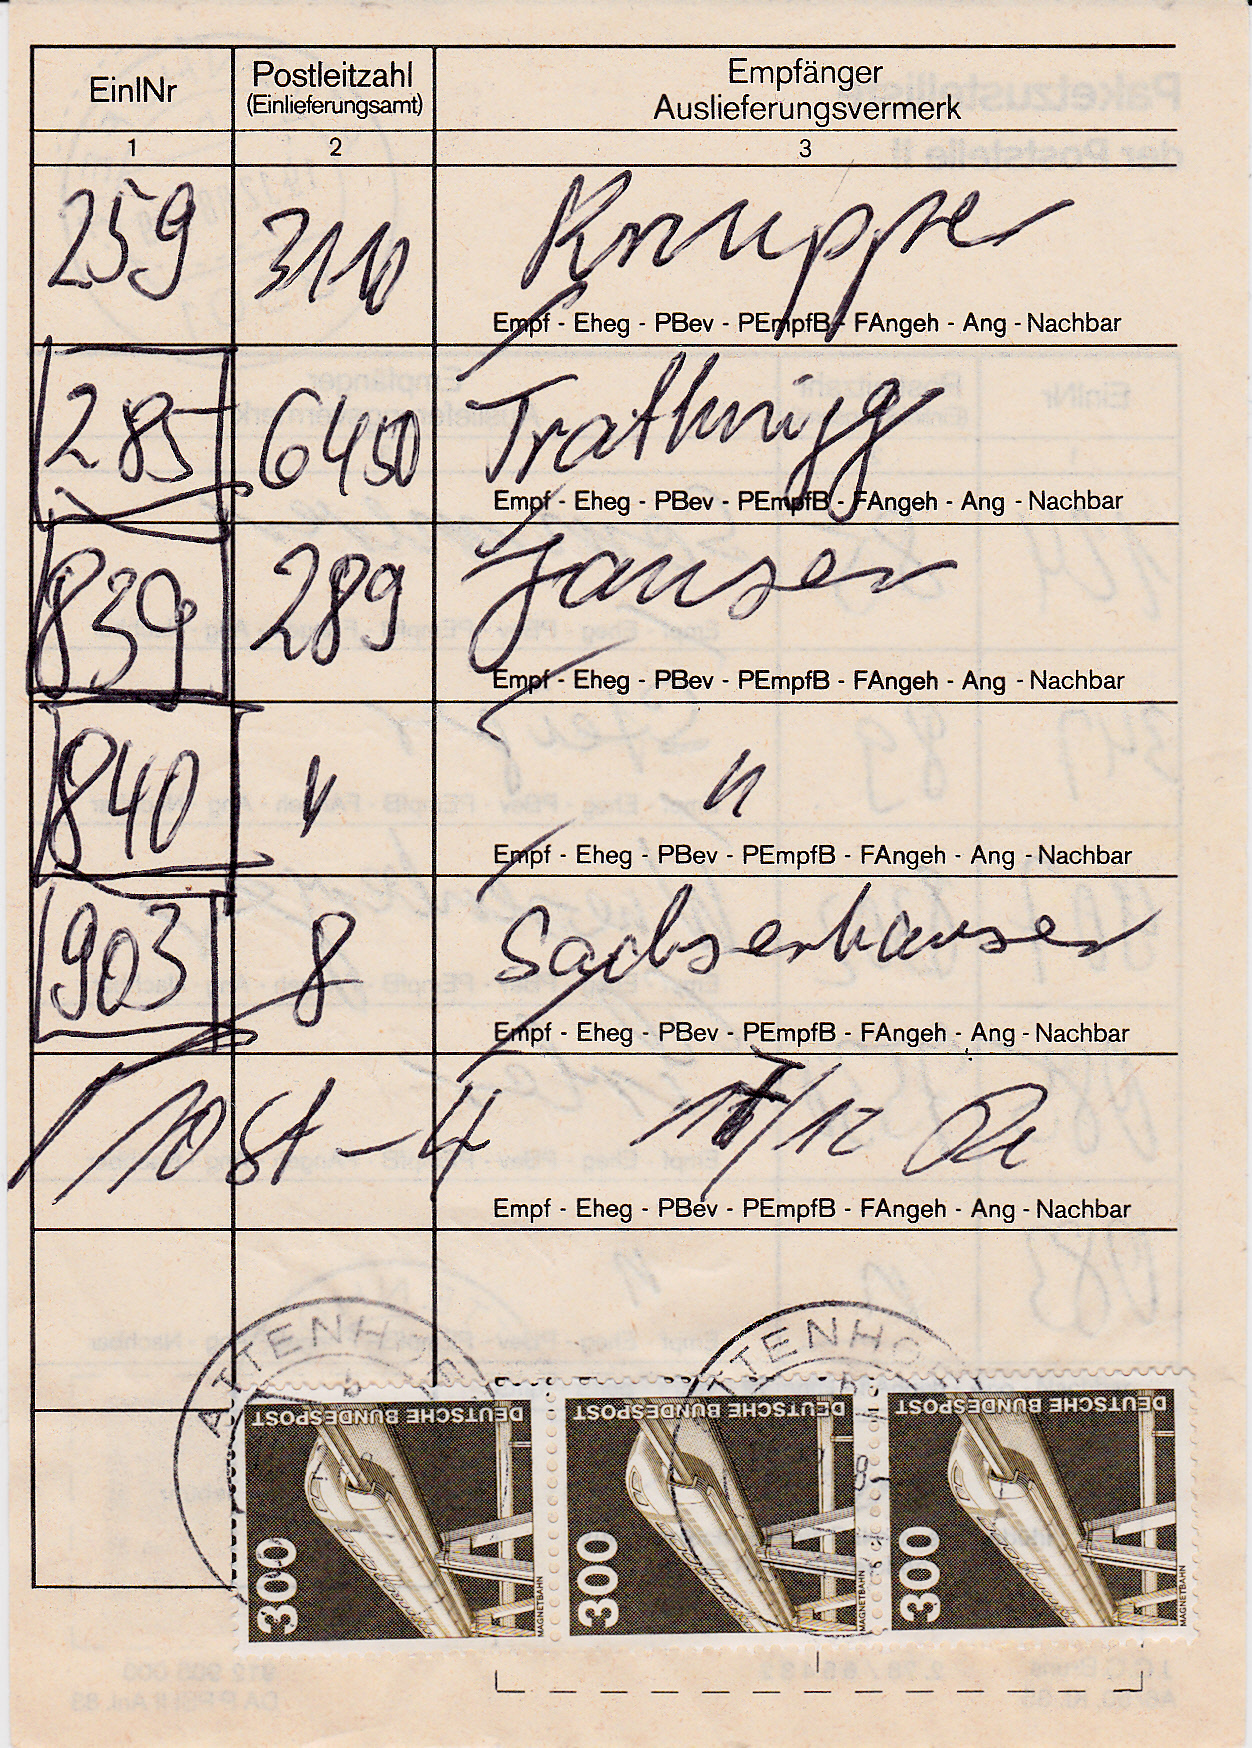 EinlNr Postleitzahl (Einlieferungsamt) Empfänger Auslieferungsvermerk
1 2 3
259 3110 Knupper
Empf - Eheg - PBev - PEmpfB - FAngeh - Ang - Nachbar
285 6450 Trathnigg
Empf - Eheg - PBev - PEmpfB - FAngeh - Ang - Nachbar
839 289 Jansen
Empf - Eheg - PBev - PEmpfB - FAngeh - Ang - Nachbar
840 " "
Empf - Eheg - PBev - PEmpfB - FAngeh - Ang - Nachbar
903 8 Sachsenhauser
Empf - Eheg - PBev - PEmpfB - FAngeh - Ang - Nachbar
10 St - 4 /12
Empf - Eheg - PBev - PEmpfB - FAngeh - Ang - Nachbar
ATTENHO TTENHO
DEUTSCHE BUNDESPOST DEUTSCHE BUNDESPOST DEUTSCHE BUNDESPOST
300 MAGNETBAHN 300 MAGNETBAHN 300 MAGNETBAHN